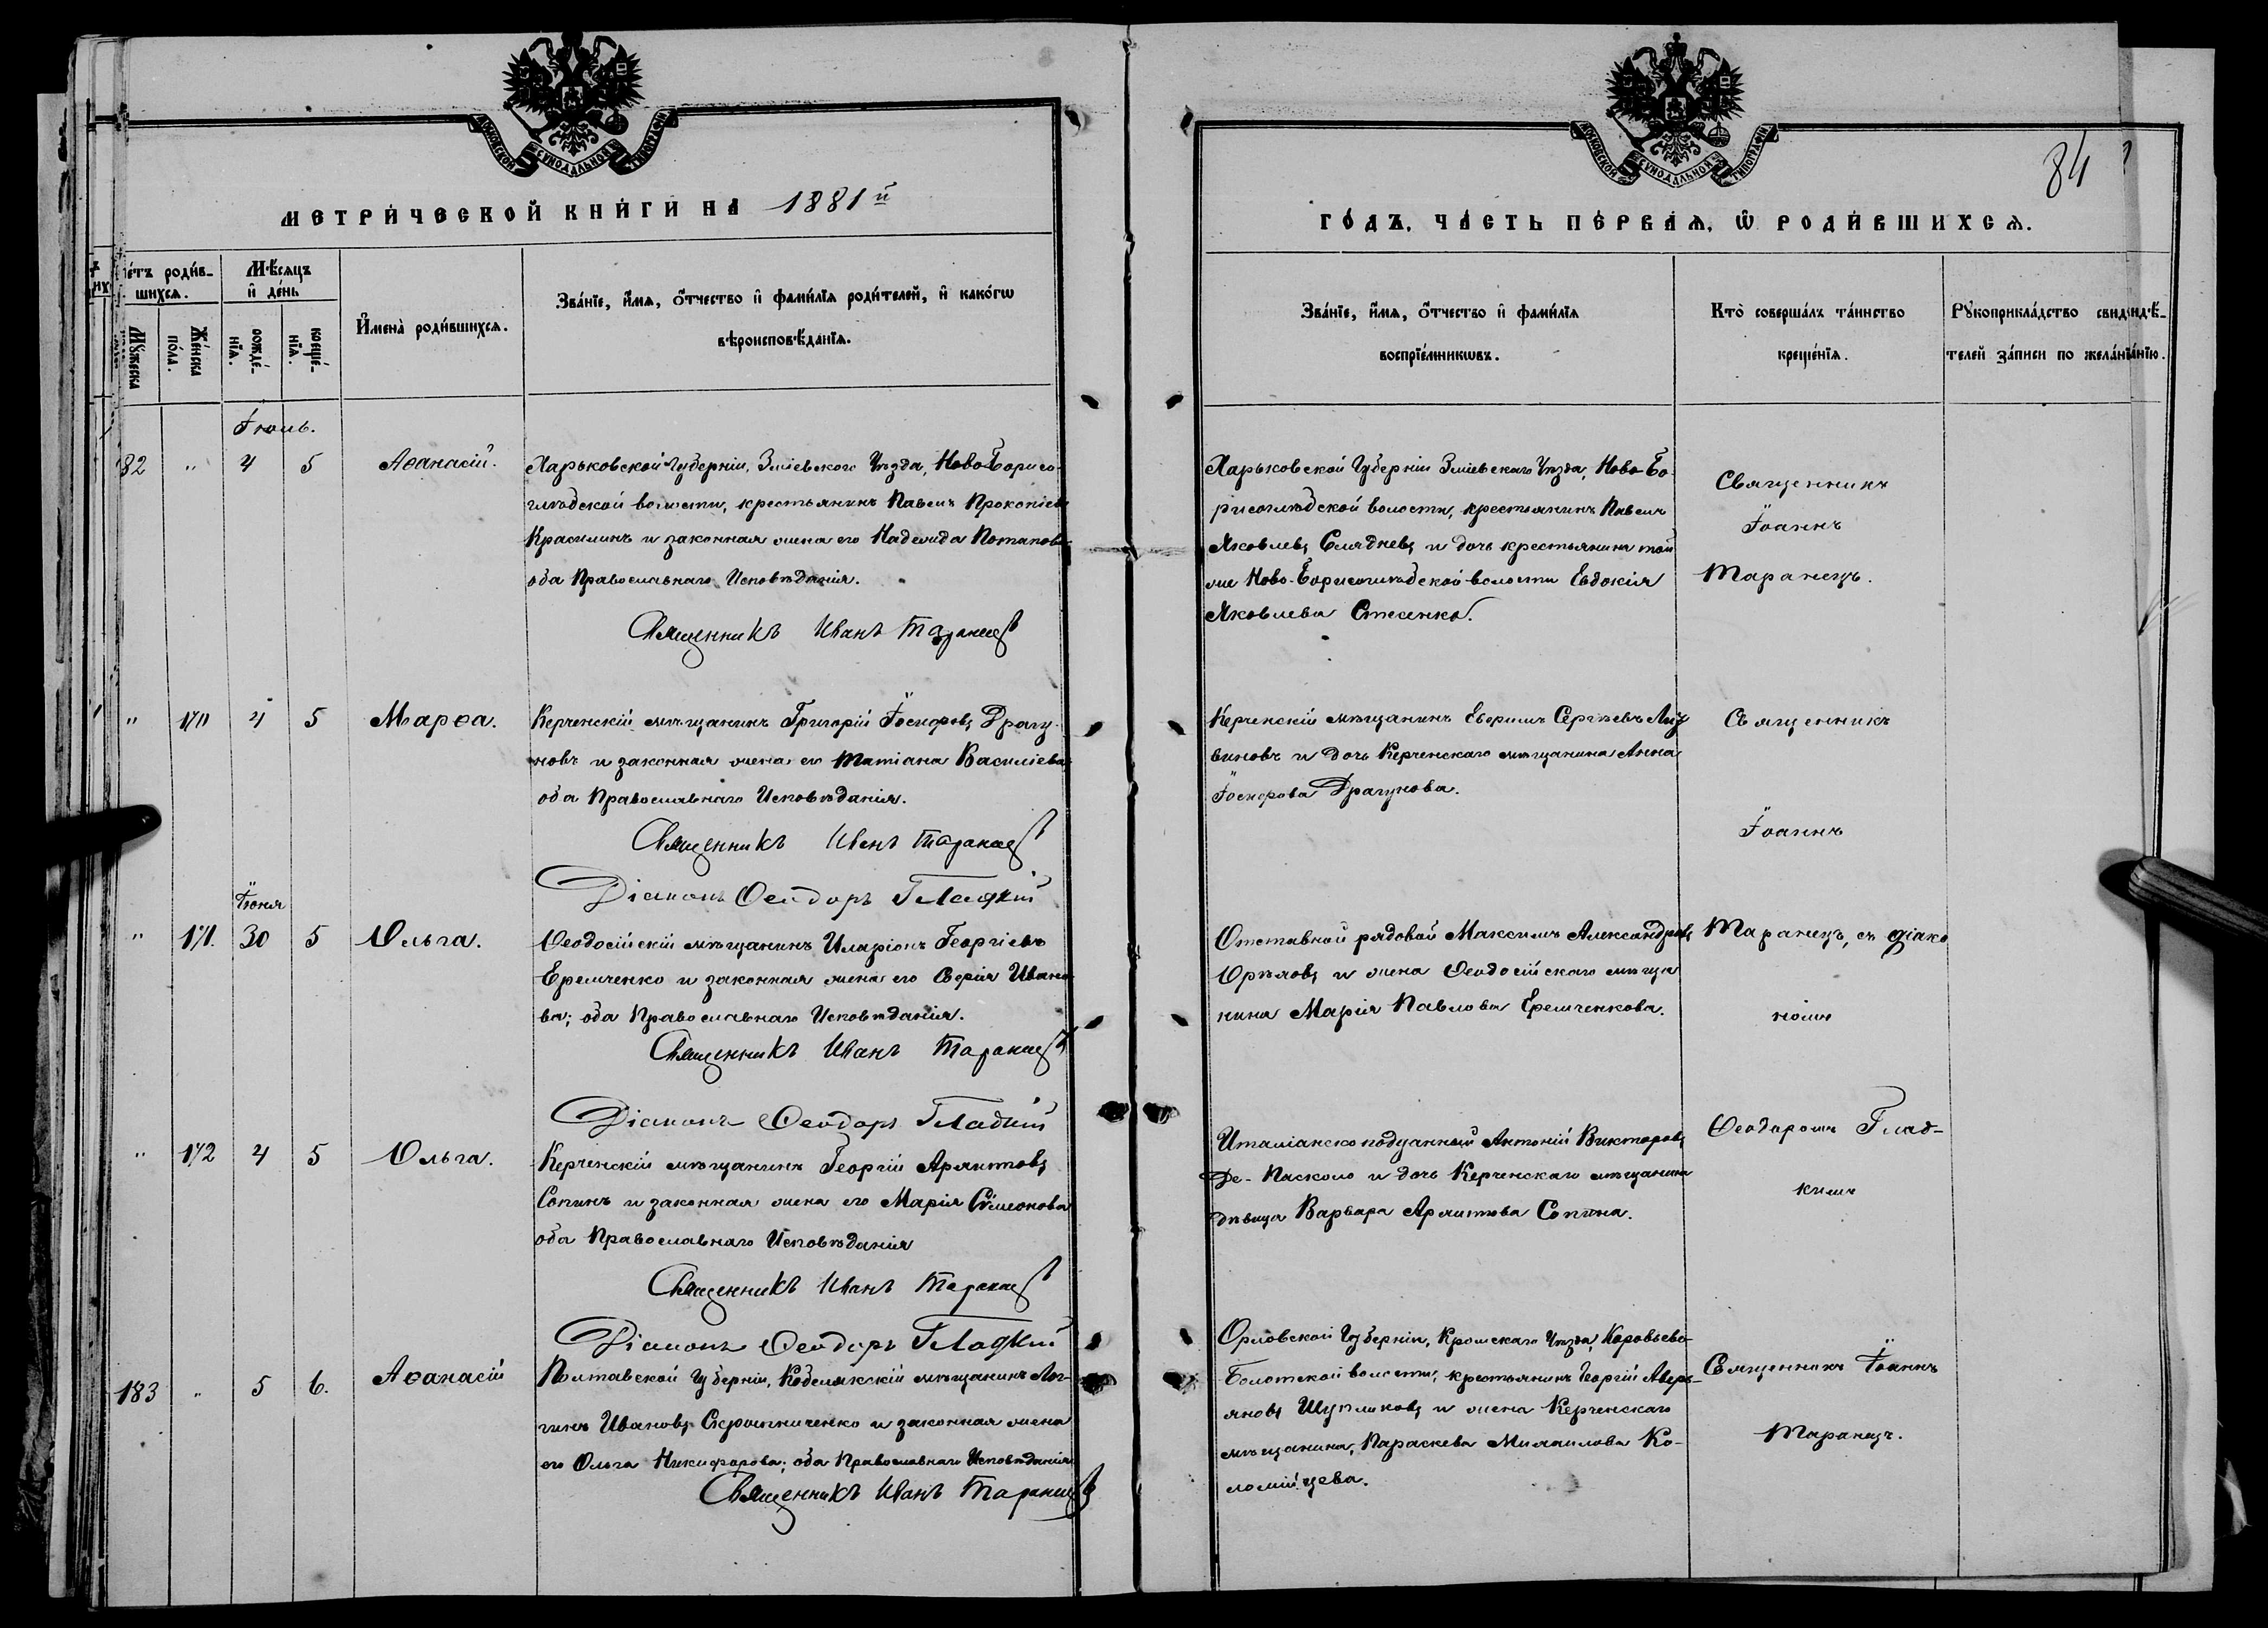 МОСКОВСКОЙ СѴНОДАЛЬНОЙ ТИПОГРАФІИ
МЕТРИЧЕСКОЙ КНИГИ НА 1881й
Мѣсяцъ и день
шихся.
Мужеска
Женска пола.
рожденія.
крещенія.
Имена родившихся.
Званіе, имя, отчество и фамилія родителей, и какогѡ
вѣроисповѣданія.
Іюль.
82 " 4 5 Аѳанасій.
Харьковской Губерніи, Зміевского Уѣзда, Ново-Борисо-
глѣбской волости, крестьянинъ Павелъ Прокопіевъ
Красилинъ и законная жена его Надежда Потапова
оба Православнаго Исповѣданія.
Священникъ Иванъ Таранецъ
" 170 4 5 Марѳа.
Керченскій мѣщанинъ Григорій Іосифовъ Драгу-
новъ и законная жена его Татіана Василіева
оба Православнаго Исповѣданія.
Священникъ Иванъ Таранецъ
Діаконъ Ѳеодоръ Гладкій
Іюня
" 171. 30 5 Ольга.
Ѳеодосійскій мѣщанинъ Иларіонъ Георгіевъ
Еремченко и законная жена его Ивано-
ва; оба Православнаго Исповѣданія.
Священникъ Иванъ Таранецъ
Діаконъ Ѳеодоръ Гладкій
" 172 4 5 Ольга.
Керченскій мѣщанинъ Георгій
Сопинъ и законная жена его Марія Симеонова
оба Православнаго Исповѣданія
Священникъ Иванъ Таранецъ
Діаконъ Ѳеодоръ Гладкій
183 " 5 6. Аѳанасій
Полтавской Губерніи, Кобелякскій мѣщанинъ Лог-
гинъ Ивановъ и законная жена
его Ольга Никифорова; оба Православнаго Исповѣданія
Священникъ Иванъ Таранецъ
МОСКОВСКОЙ СѴНОДАЛЬНОЙ ТИПОГРАФІИ
84
ГОДЪ, ЧАСТЬ ПЕРВАЯ, Ѡ РОДИВШИХСЯ.
Званіе, имя, отчество и фамилія
воспріемникѡвъ.
Кто совершалъ таинство
крещенія.
Рукоприкладство свидѣ-
телей записи по желанію.
Харьковской Губерніи Зміевскаго Уѣзда, Ново-Бо-
рисоглѣбской волости, крестьянинъ Павелъ
Яковлевъ и дочь крестьянина той
же Ново-Борисоглѣбской волости Евдокія
Яковлева Стеценко.
Священникъ
Іоаннъ
Таранецъ.
Керченскій мѣщанинъ Сергѣевъ
виновъ и дочь Керченскаго мѣщанина Анна
Іосифова Драгунова.
Священникъ
Іоаннъ
Отставной рядовой Максимъ Александровъ
Орѣховъ и жена Ѳеодосійскаго мѣща-
нина Марія Павлова Еремченкова.
Таранецъ, съ діако
номъ
Италіанскоподданный Антоній Викторовъ
Де-Пасколо и дочь Керченскаго мѣщанина
дѣвица Варвара Сопина.
Ѳеодоромъ Глад-
кимъ
Орловской Губерніи, Кромскаго Уѣзда, Коровьево-
Болотской волости, крестьянинъ Георгій Аверь-
яновъ и жена Керченскаго
мѣщанина, Параскева Михаилова Ко-
ломійцева.
Священникъ Іоаннъ
Таранецъ.